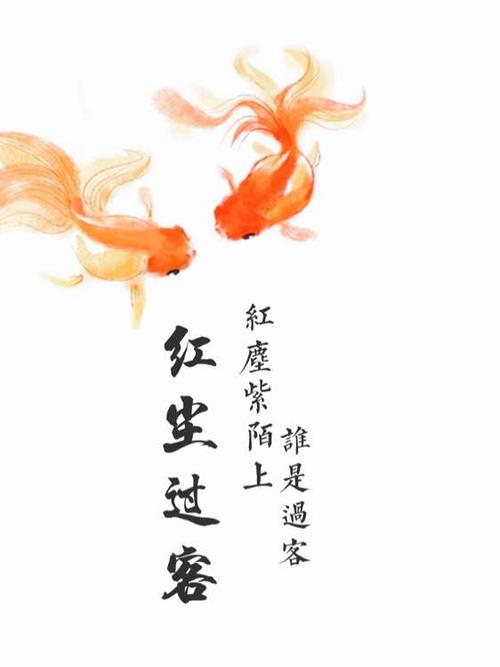 红尘过客
紅塵紫陌上
誰是過客